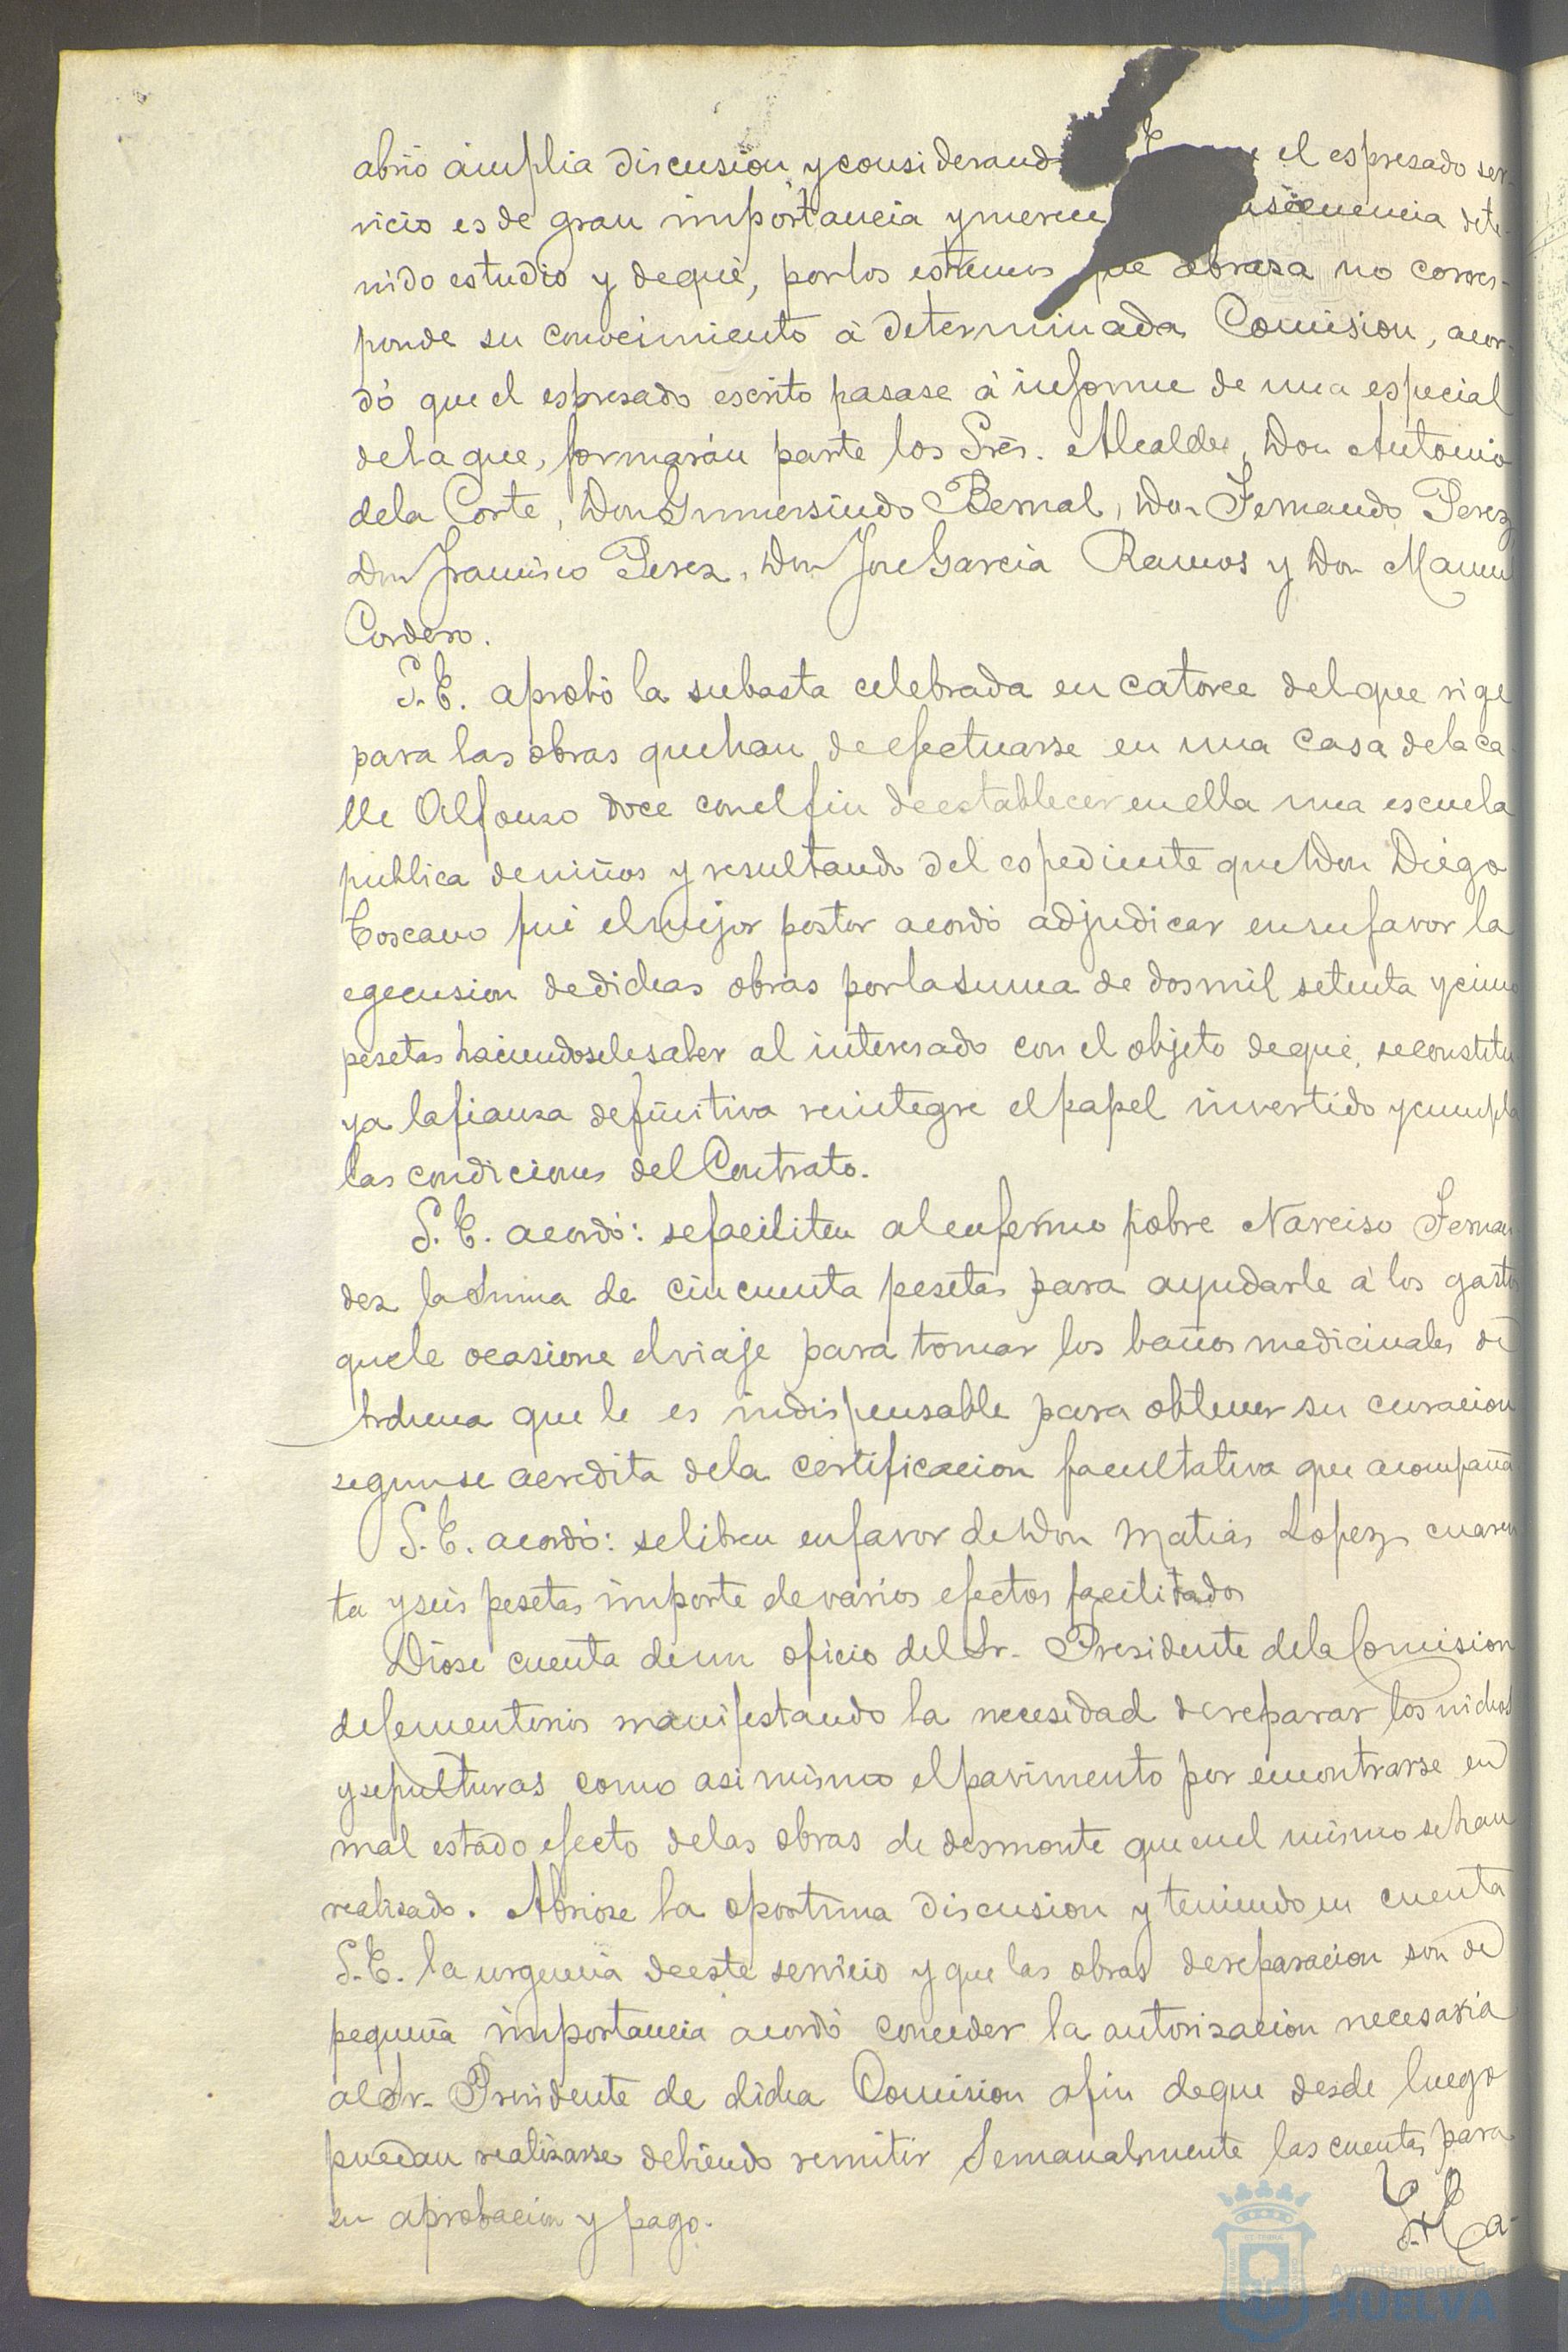 abrió ámplia discusion y considerando el espresado ser-
vicio es de gran importancia y merece dete-
nido estudio y de que, por los estremos que abraza no corres-
ponde su conocimiento á determinada Comision, acor-
dó que el espresado escrito pasase á informe de una especial
de la que, formarán parte los Sres. Alcalde, Don Antonio
de la Corte, Don Gumersindo Bernal, Don Fernando Perez
Don Francisco Perez, Don Jose Garcia Ramos y Don Manuel
Cordero.
S. E. aprobó la subasta celebrada en catorce del que rige
para las obras que han de efectuarse en una casa de la ca-
lle Alfonso doce con el fin de establecer en ella una escuela
publica de niños y resultando del espediente que Don Diego
Toscano fué el mejor postor acordó adjudicar en su favor la
egecusion de dichas obras por la suma de dos mil setenta y cinco
pesetas haciendosele saber al interesado con el objeto de que, se constitu
ya la fianza definitiva reintegre el papel invertido y cumpla
las condiciones del Contrato.
S. E. acordó: se faciliten al enfermo pobre Narciso Fernan
dez la suma de cincuenta pesetas para ayudarle á los gastos
que le ocasione el viaje para tomar los baños medicinales de
que le es indispensable para obtener su curacion
segun se acredita de la certificacion facultativa que acompaña
S. E. acordó: se libren en favor de Don Matias Lopez cuaren
ta y seis pesetas importe de varios efectos facilitados
Diose cuenta de un oficio del Sr. Presidente de la Comision
de Cementerios manifestando la necesidad de reparar los nichos
y sepulturas como asi mismo el pavimento por encontrarse en
mal estado efecto de las obras de desmonte que en el mismo se han
realizado. Abriose la oportuna discusion y teniendo en cuenta
S. E. la urgencia de este servicio y que las obras de reparacion son de
pequeña importancia acordó conceder la autorizacion necesaria
al Sr. Presidente de dicha Comision afin de que desde luego
puedan realizarse debiendo remitir semanalmente las cuentas para
su aprobacion y pago.
Ayuntamiento de
HUELVA